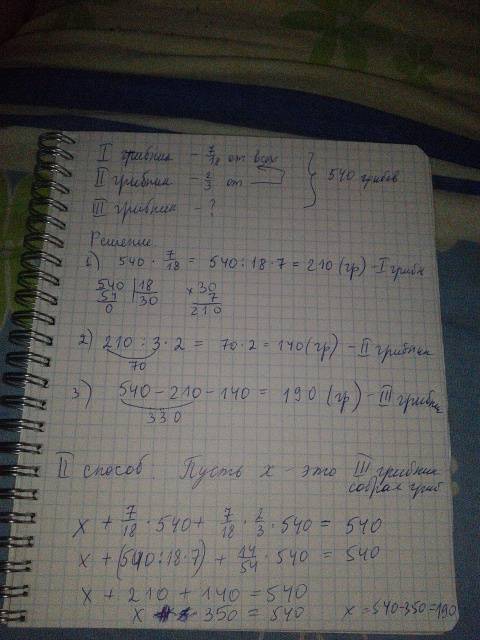 I грибник - 7/18 от всех
II грибник - 2/3 от
III грибник - ?
} 540 грибов
Решение
1) 540 · 7/18 = 540 : 18 · 7 = 210 (гр) - I грибн
540 | 18
54 | 30
0
× 30
7
210
2) 210 : 3 · 2 = 70 · 2 = 140 (гр) - II грибник
70
3) 540 - 210 - 140 = 190 (гр) - III грибник
330
II способ. Пусть x - это III грибник
собрал гриб
x + 7/18 · 540 + 7/18 · 2/3 · 540 = 540
x + (540 : 18 · 7) + 14/54 · 540 = 540
x + 210 + 140 = 540
x 350 = 540 x = 540 - 350 = 190